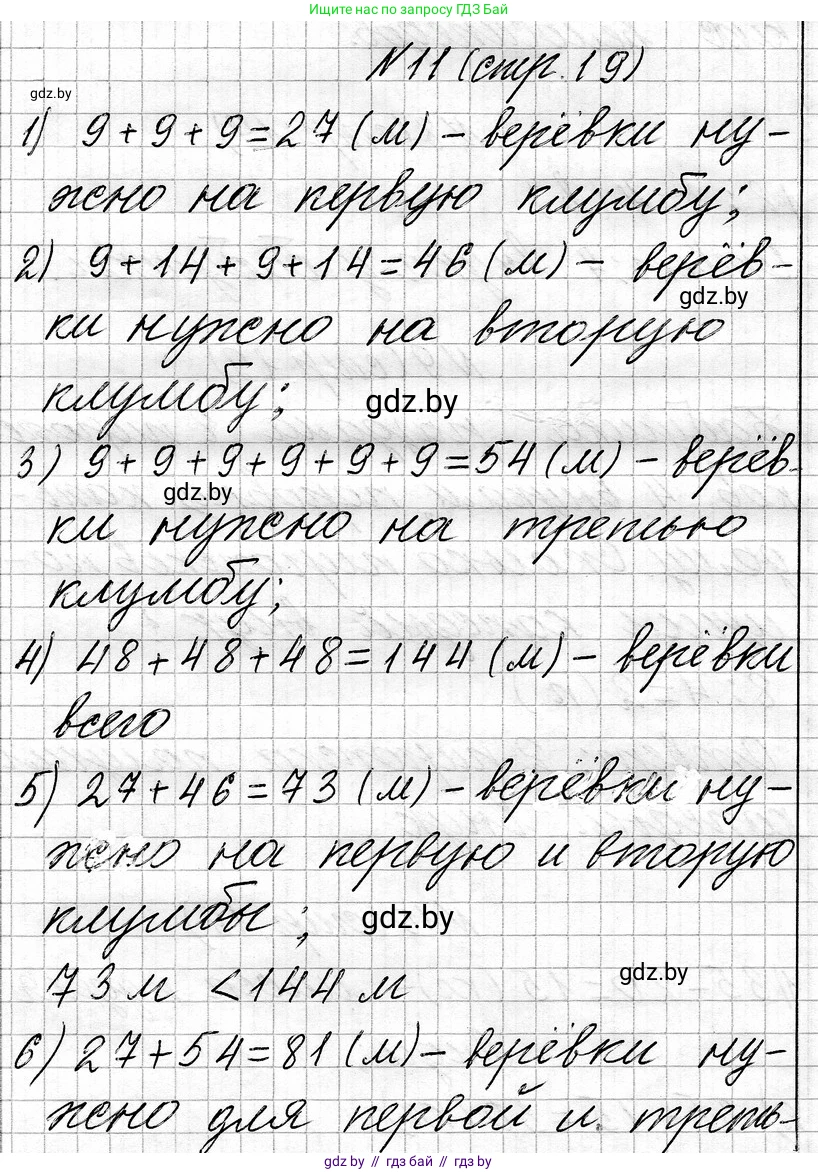 Ищите нас по запросу ГДЗ Бай
№11 (стр. 19)
gdz.by
1) 9+9+9=27 (м) – верёвки ну-
жно на первую клумбу;
2) 9+14+9+14=46 (м) – верёв-
gdz.by
ки нужно на вторую
клумбу;
gdz.by
3) 9+9+9+9+9+9=54 (м) – верёв-
gdz.by
ки нужно на третью
клумбу;
4) 48+48+48=144 (м) – верёвки
всего
5) 27+46=73 (м) – верёвки ну-
жно на первую и вторую
клумбы;
gdz.by
73 м < 144 м
gdz.by
6) 27+54=81 (м) – верёвки ну-
жно для первой и треть-
gdz.by // гдз бай // gdz.by